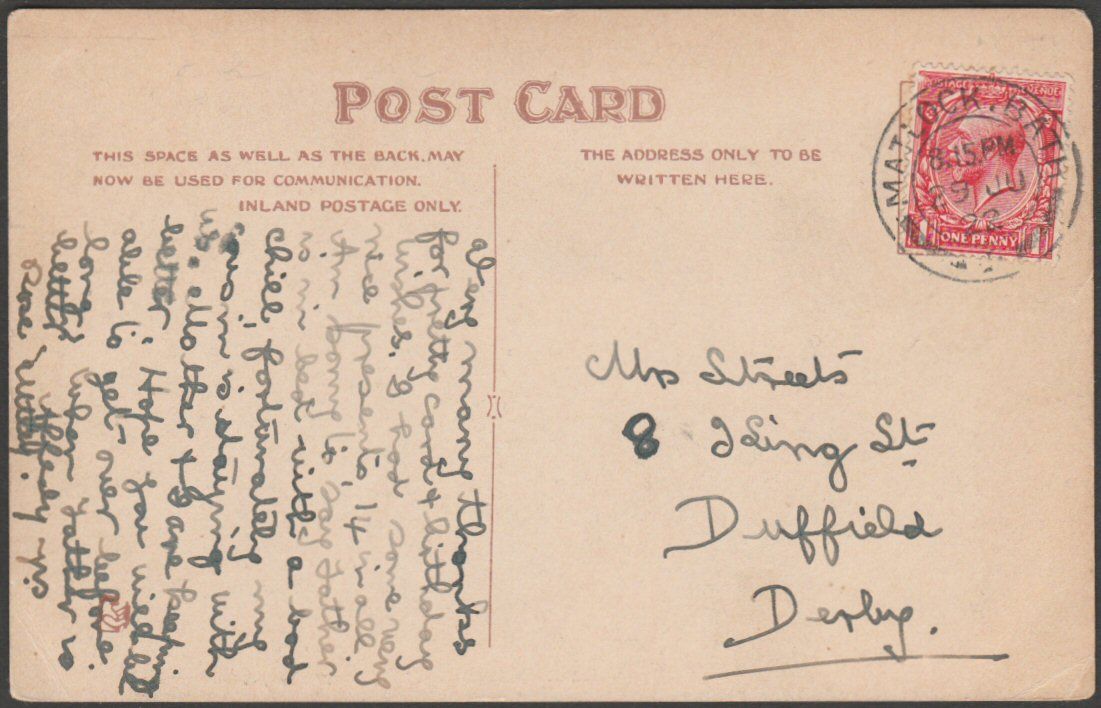 POST CARD
THIS SPACE AS WELL AS THE BACK, MAY
NOW BE USED FOR COMMUNICATION.
INLAND POSTAGE ONLY.
THE ADDRESS ONLY TO BE
WRITTEN HERE.
POSTAGE REVENUE
ONE PENNY
MATLOCK. BATH
8.15 PM
29 JU
22
Mrs Streets
8 King St
Duffield
Derby.
Very many thanks
for pretty card & birthday
wishes. I had some very
nice presents 14 in all.
Am sorry to say Father
is in bed with a bad
chill, fortunately my
cousin is staying with
us so Mother & I are
better. Hope you will be
able to get over before
long when Father is
better.
Rose